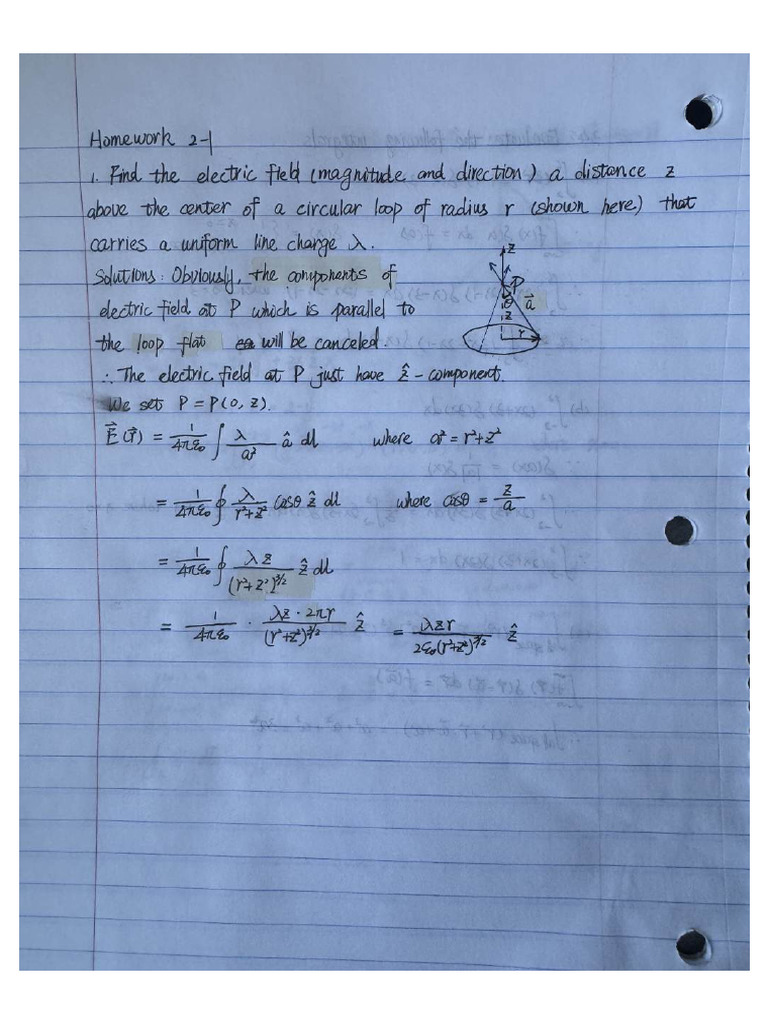 Homework 2-1
1. Find the electric field (magnitude and direction) a distance z
above the center of a circular loop of radius r (shown here) that
carries a uniform line charge λ.
Solutions: Obviously, the components of
electric field at P which is parallel to
the loop flat will be canceled.
∴ The electric field at P just have ẑ - component.
We set P = P(0, z).
z
P
θ
a⃗
z
r
E⃗(r⃗) = 1/4πε₀ ∫ λ/a² â dl where a² = r²+z²
= 1/4πε₀ ∮ λ/r²+z² cosθ ẑ dl where cosθ = z/a
= 1/4πε₀ ∮ λz/(r²+z²)^3/2 ẑ dl
= 1/4πε₀ · λz·2πr/(r²+z²)^3/2 ẑ = λzr/2ε₀(r²+z²)^3/2 ẑ